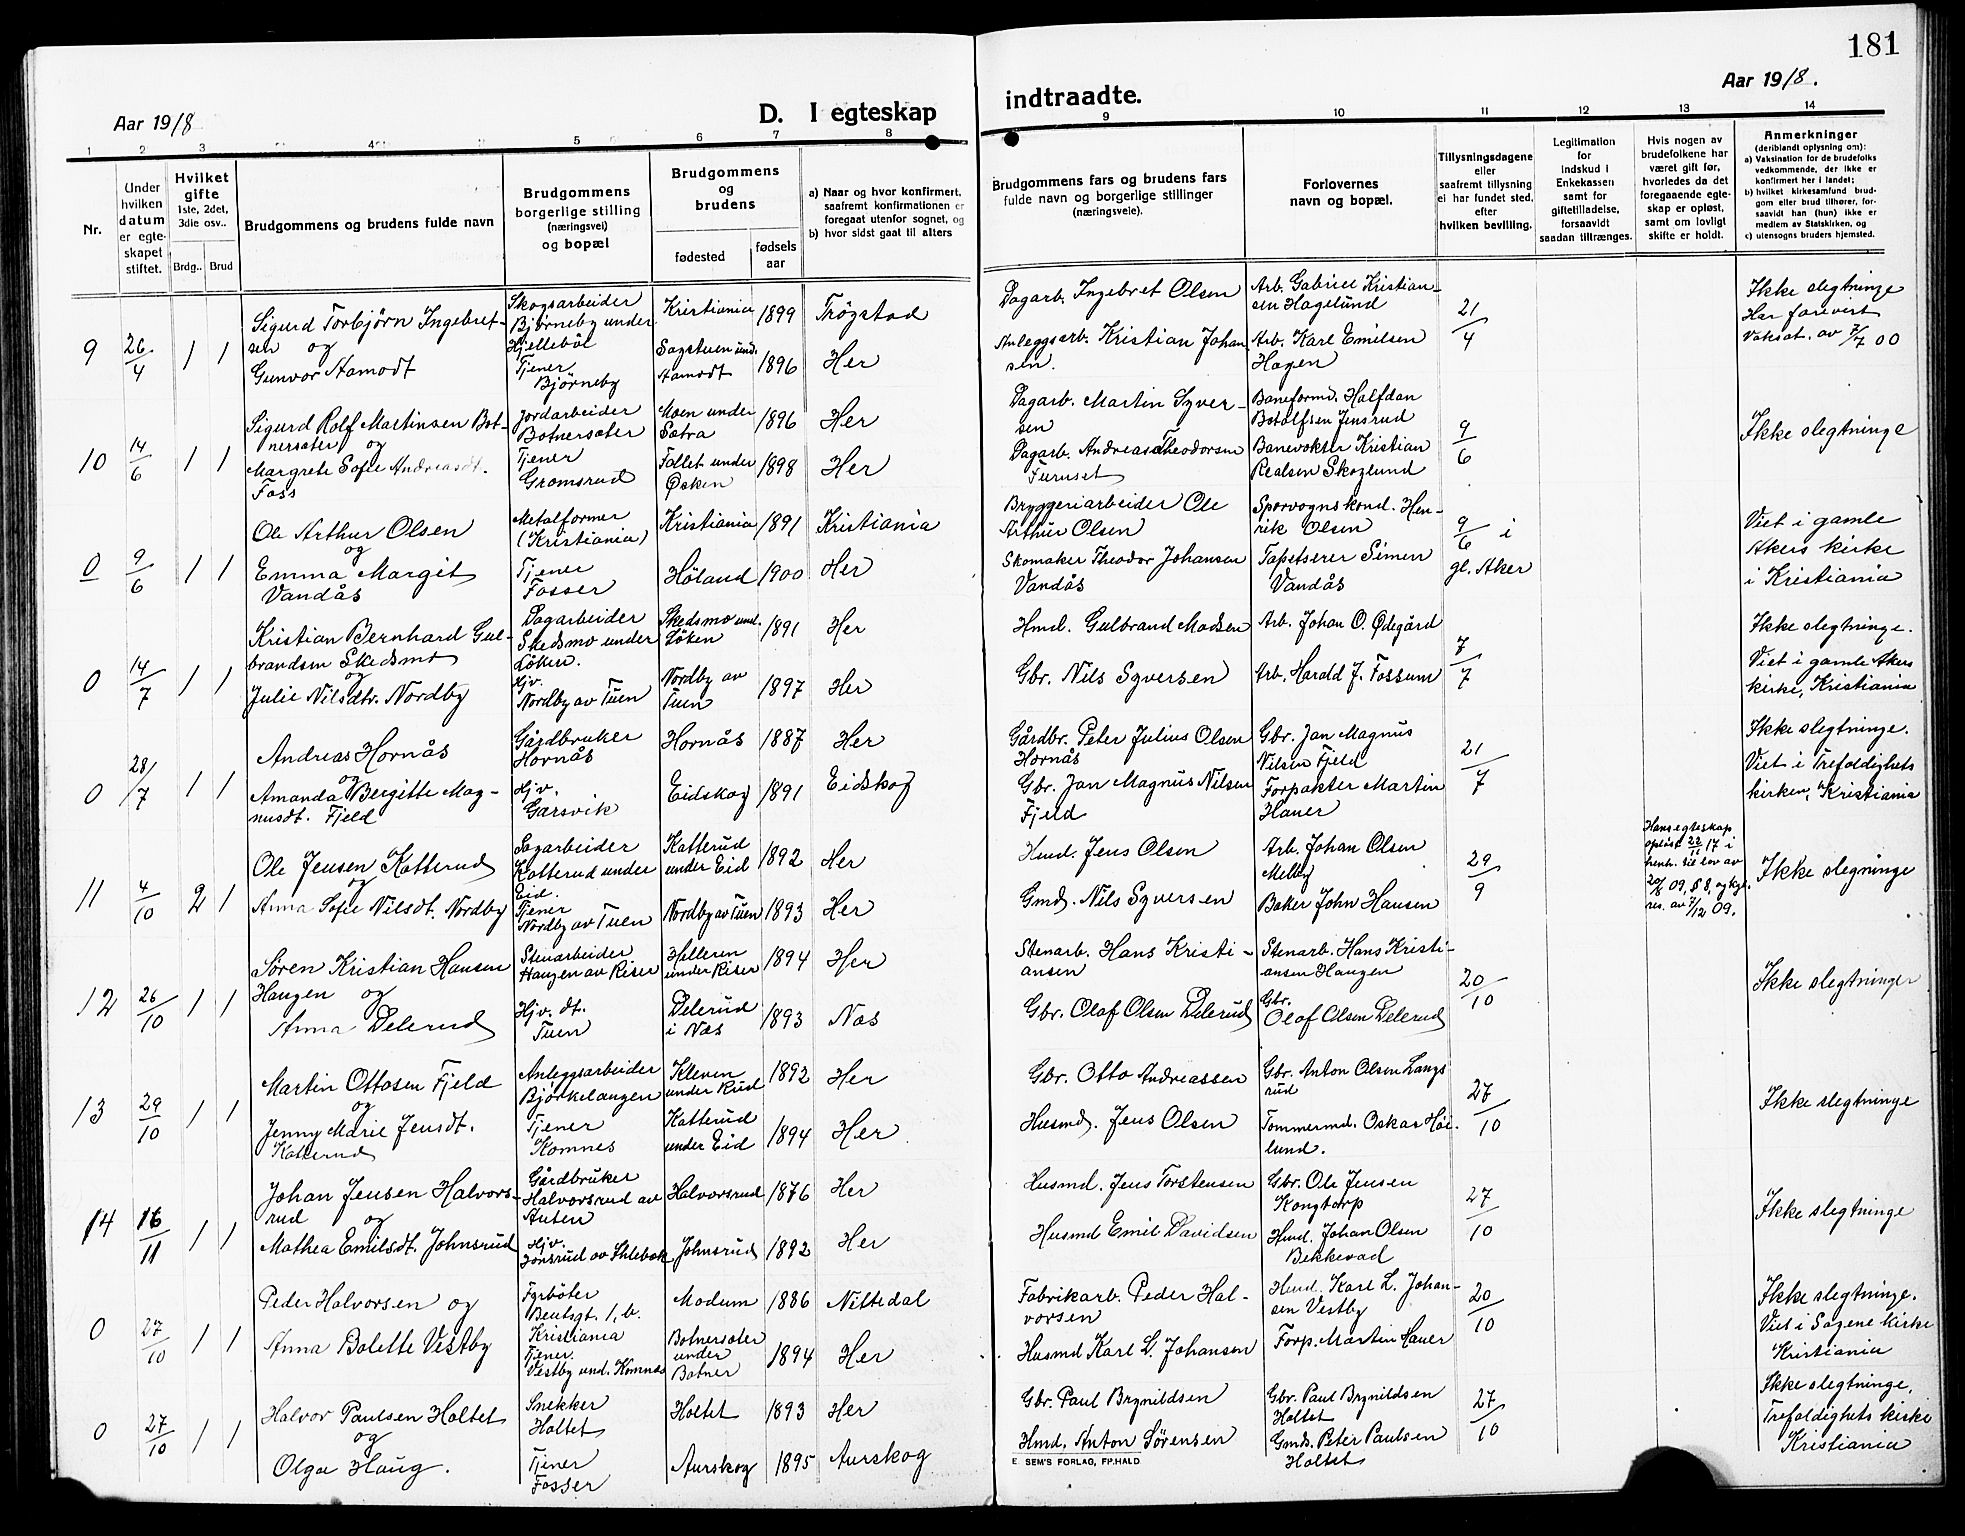 181
Aar 1918
D. I egteskap
indtraadte.
Aar 1918.
1 2 3 4 5 6 7 8
9 10 11 12 13 14
Nr.
Under hvilken datum er egteskapet stiftet.
Hvilket gifte 1ste, 2det, 3die osv..
Brdg.. Brud
Brudgommens og brudens fulde navn
Brudgommens borgerlige stilling (næringsvei) og bopæl
Brudgommens og brudens
fødested
fødsels aar
a) Naar og hvor konfirmert, saafremt konfirmationen er foregaat utenfor sognet, og
b) hvor sidst gaat til alters
Brudgommens fars og brudens fars fulde navn og borgerlige stillinger (næringsveie).
Forlovernes navn og bopæl.
Tillysningsdagene eller saafremt tillysning ei har fundet sted, efter hvilken bevilling.
Legitimation for indskud i Enkekassen samt for giftetilladelse, forsaavidt saadan tiltrænges.
Hvis nogen av brudefolkene har været gift før, hvorledes da det foregaaende egteskap er opløst, samt om lovligt skifte er holdt.
Anmerkninger (deriblandt oplysning om):
a) Vaksination for de brudefolks vedkommende, der ikke er konfirmert her i landet;
b) hvilket kirkesamfund brudgom eller brud tilhører, forsaavidt han (hun) ikke er medlem av Statskirken, og
c) utensogns bruders hjemsted.
9 26/4 1 1 Sigurd Torbjørn Ingebretsen og Gunvor Aamodt
Skogsarbeider Bjørneby under Hjellebøl Kristiania 1899 Trøgstad
Tjener Bjørneby Sagstuen und. Aamodt 1896 Her
Dagarb. Ingebret Olsen Arb. Gabriel Kristiansen Hagelund 21/4
Anleggsarb. Kristian Johansen. Arb. Karl Emilsen Hagen
Ikke slegtninge Har forevist Vaksat. av 7/7 00
10 14/6 1 1 Sigurd Rolf Martinsen Botnersæter og Margrete Sofie Andreasdt. Foss
Jordarbeider Botnersæter Moen under Sætra 1896 Her
Tjener Gromsrud Fallet under Øsken 1898 Her
Dagarb. Martin Syversen Baneformd. Halfdan Botolfsen Jensrud 9/6
Dagarb. Andreas Theodorsen Furuset Banevokter Kristian Realsen Skoglund
Ikke slegtninge
0 9/6 1 1 Ole Arthur Olsen og Emma Margit Vandås
Metalformer (Kristiania) Kristiania 1891 Kristiania
Tjener Fosser Høland 1900 Her
Bryggeriarbeider Ole Arthur Olsen Sporvognskond. Henrik Olsen 9/6 i gl. Aker
Skomaker Theodor Johansen Vandås Tapetserer Simen Vandås
Viet i gamle Akers kirke i Kristiania
0 14/7 1 1 Kristian Bernhard Gulbrandsen Skedsmo og Julie Nilsdtr. Nordby
Dagarbeider Skedsmo under Løken. Skedsmo und. Løken 1891 Her
Hjv. Nordby av Tuen Nordby av Tuen 1897 Her
Hmd. Gulbrand Madsen Arb. Johan O. Ødegård 7/7
Gbr. Nils Syversen Arb. Harald J. Fossum
Ikke slegtninge. Viet i gamle Akers kirke, Kristiania
0 28/7 1 1 Andreas Hornås og Amanda Bergitte Magnusdt. Fjeld
Gårdbruker Hornås Hornås 1887 Her
Hjv. Garsvik Eidskog 1891 Eidskog
Gårdbr. Peter Julius Olsen Hornås Gbr. Jan Magnus Nilsen Fjeld 21/7
Gbr. Jan Magnus Nilsen Fjeld Forpakter Martin Hauer
Ikke slegtninge. Viet i Trefoldighets kirken, Kristiania
11 4/10 2 1 Ole Jensen Katterud og Anna Sofie Nilsdt. Nordby
Dagarbeider Katterud under Eid. Katterud under Eid 1892 Her
Tjener Nordby av Tuen Nordby av Tuen 1893 Her
Hmd. Jens Olsen Arb. Johan Olsen Melby 29/9
Gmd. Nils Syversen Baker John Hansen
Hans egteskap opløst 22/11 17 i henh. til lov av 20/8 09, § 8, og kgl. res. av 7/12 09.
Ikke slegninge
12 26/10 1 1 Søren Kristian Hansen Haugen og Anna Delerud
Stenarbeider Haugen av Riser Helleren under Riser 1894 Her
Hjv. dt. Tuen Delerud i Nas 1893 Nas
Stenarb. Hans Kristiansen Stenarb. Hans Kristiansen Haugen 20/10
Gbr. Olaf Olsen Delerud Gbr. Olaf Olsen Delerud
Ikke slegtninger
13 29/10 1 1 Martin Ottosen Fjeld og Jenny Marie Jensdt. Katterud
Anleggsarbeider Bjørkelangen Kleven under Rud 1892 Her
Tjener Komnes Katterud under Eid 1894 Her
Gbr. Otto Andreassen Gbr. Anton Olsen Langsrud 27/10
Husmd. Jens Olsen Tømmermd. Oskar Høilund.
Ikke slegtninge
14 16/11 1 1 Johan Jensen Halvorsrud og Mathea Emilsdt. Johnsrud
Gårdbruker Halvorsrud av Auten Halvorsrud 1876 Her
Hjv. Jonsrud av Skleback Johnsrud 1892 Her
Husmd. Jens Torstensen Gbr. Ole Jensen Kongtorp 27/10
Husmd Emil Davidsen Hmd. Johan Olsen Bekkevad
Ikke slegtninge
0 27/10 1 1 Peder Halvorsen og Anna Bolette Vestby
Fyrbøter Bentsgt. 1, b. Kristiania Modum 1886 Nittedal
Tjener. Vestby und. Komnes Botnersæter under Botner 1894 Her
Fabrikarb. Peder Halvorsen Hmd. Karl L. Johansen Vestby 20/10
Husmd Karl L. Johansen Forp. Martin Hauer
Ikke slegtninge. Viet i Sagene kirke Kristiania
0 27/10 1 1 Halvor Paulsen Holtet og Olga Haug.
Snekker Holtet Holtet 1893 Her
Tjener Fosser Aurskog 1895 Aurskog
Gbr. Paul Brynildsen Gbr. Paul Brynildsen Holtet 27/10
Hmd. Anton Sørensen Gmd. Peter Paulsen Holtet
Ikke slegtninge, Trefoldighets kirke Kristiania
E. SEM'S FORLAG, FR.HALD